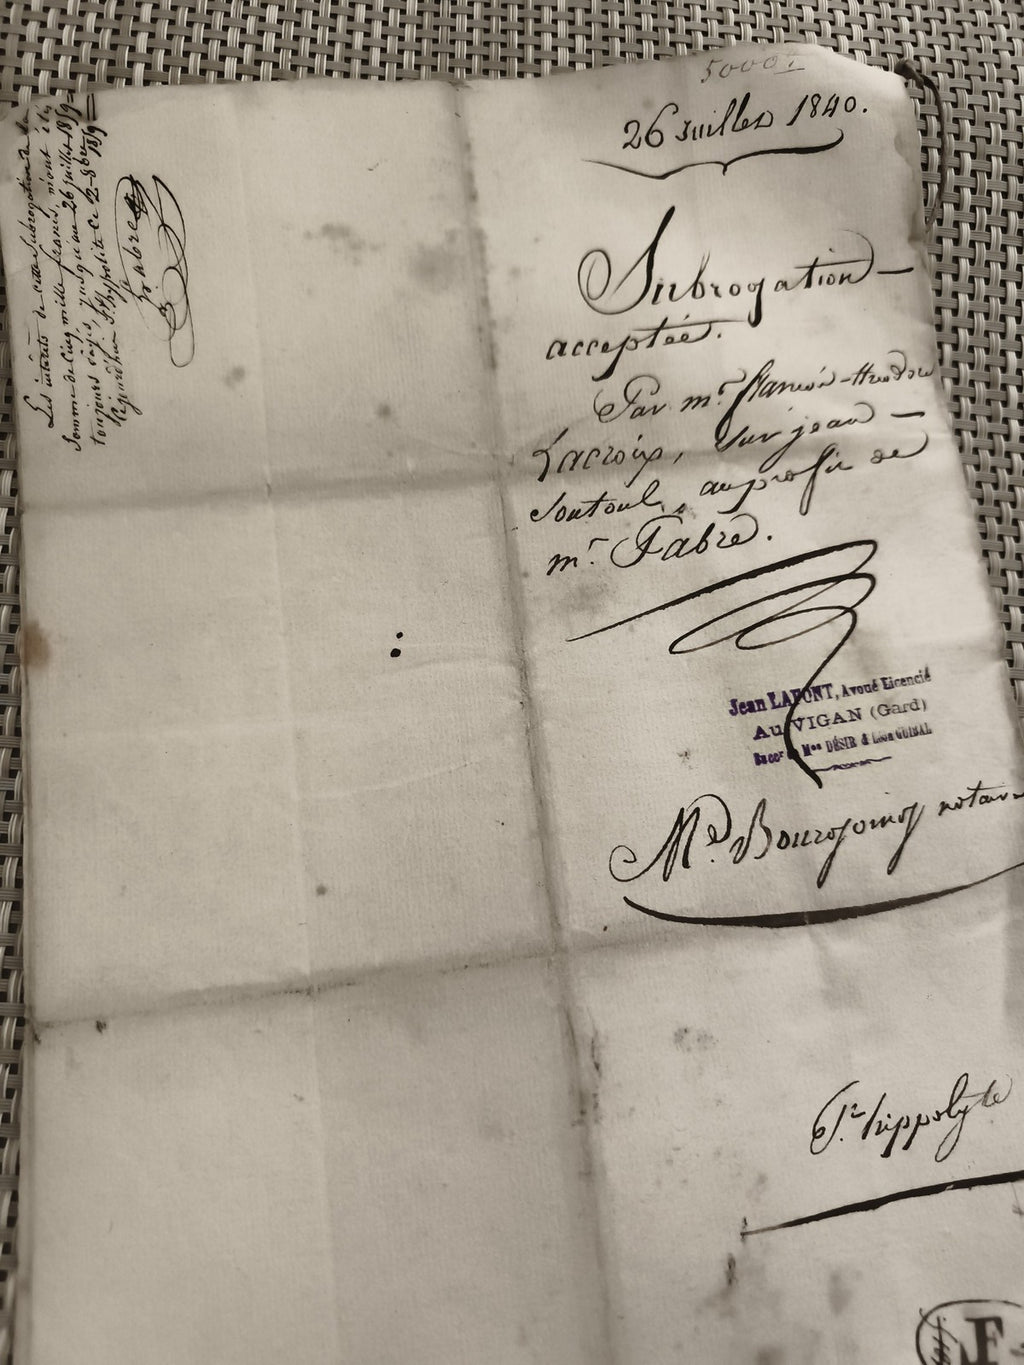 5000f
26 juillet 1840.
Subrogation
acceptée.
Par mr.
Lacroix, sur jean
Soutoul, au profit de
mr. Fabre.
Jean LAPONT, Avoué Licencié
Au VIGAN (Gard)
Succr de Mes DÉSIR & Léon GUIBAL
Me. notaire
St. hippolyte
F
Les intérêts de cette Subrogation de la
Somme de Cinq mille francs, m'ont été
toujours payés, jusqu'au 26 juillet
St. hyppolite Ce 2
Fabre